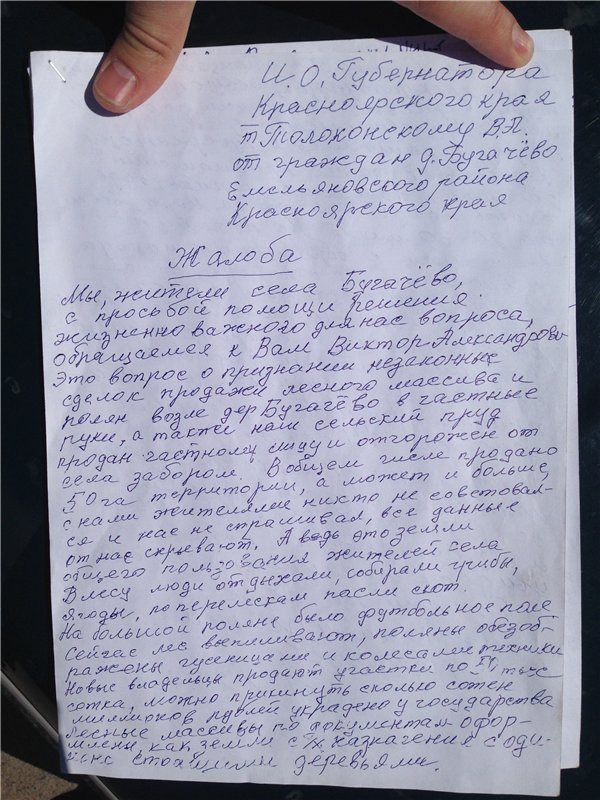 И.О. Губернатора
Красноярского края
т Толоконскому В.А.
от граждан д. Бугачёво
Емельяновского района
Красноярского края
Жалоба
Мы, жители села Бугачёво,
с просьбой помощи решения
жизненно важного для нас вопроса,
обращаемся к Вам Виктор Александрови
Это вопрос о признании незаконных
сделок продажи лесного массива и
полян возле дер Бугачёво в частные
руки, а также наш сельский пруд
продан частному лицу и отгорожен от
села забором. В общем числе продано
50 га территории, а может и больше,
с нами жителями никто не советовал-
ся и нас не спрашивал, все данные
от нас скрывают. А ведь это земли
общего пользования жителей села
В лесу люди отдыхали, собирали грибы,
ягоды, по перелескам пасли скот.
На большой поляне было футбольное поле
Сейчас лес выпиливают, поляны обезоб-
ражены гусеницами и колёсами техники
Новые владельцы продают участки по тыс
сотка, можно прикинуть сколько сотен
миллионов рублей украдено у государства
Лесные массивы по документам офор-
млены, как земли с/х назначения с оди-
стоящими деревьями.